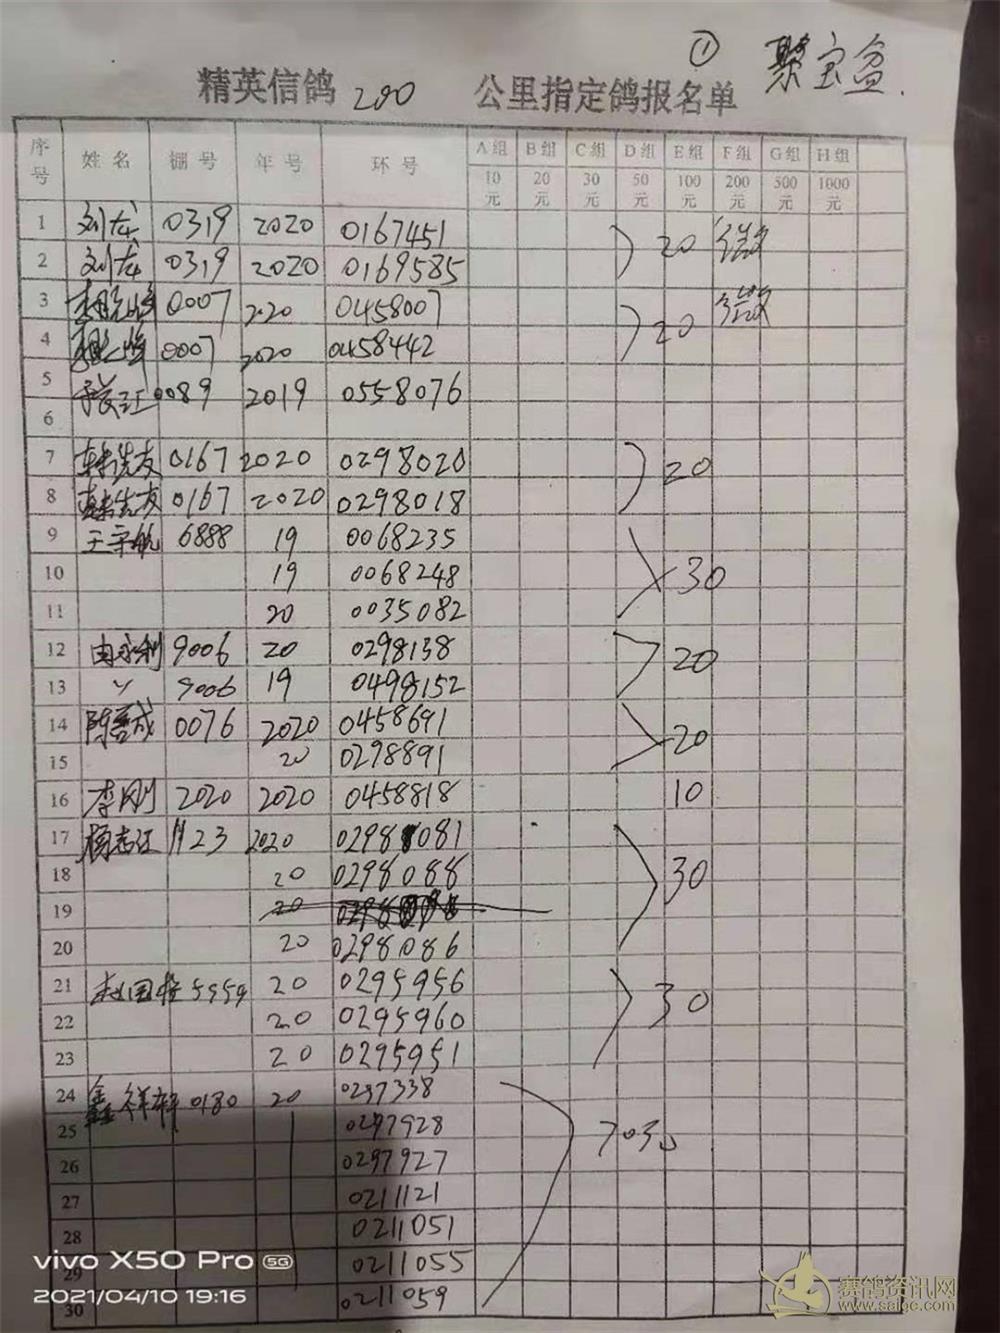 ① 聚宝盆.
精英信鸽 200 公里指定鸽报名单
序号 姓名 棚号 年号 环号 A组 B组 C组 D组 E组 F组 G组 H组
10元 20元 30元 50元 100元 200元 500元 1000元
1 刘龙 0319 2020 0167451
2 刘龙 0319 2020 0169585 20
3 0007 2020 0458007
4 0007 2020 0458442 20
5 0089 2019 0558076
6
7 韩洪友 0167 2020 0298020 20
8 韩洪友 0167 2020 0298018
9 王宇航 6888 19 0068235
10 19 0068248 30
11 20 0035082
12 由永利 9006 20 0298138 20
13 〃 9006 19 0498152
14 陈喜成 0076 2020 0458691 20
15 20 0298891
16 李刚 2020 2020 0458818 10
17 杨志江 1123 2020 0298081
18 20 0298088 30
19 20
20 20 0298086
21 赵国 5559 20 0295956 30
22 20 0295960
23 20 0295951
24 鑫祥轩 0180 20 0297338
25 0297928 70元
26 0297927
27 0211121
28 0211051
29 0211055
30 0211059
vivo X50 Pro 5G
2021/04/10 19:16
赛鸽资讯网
www.saigc.com